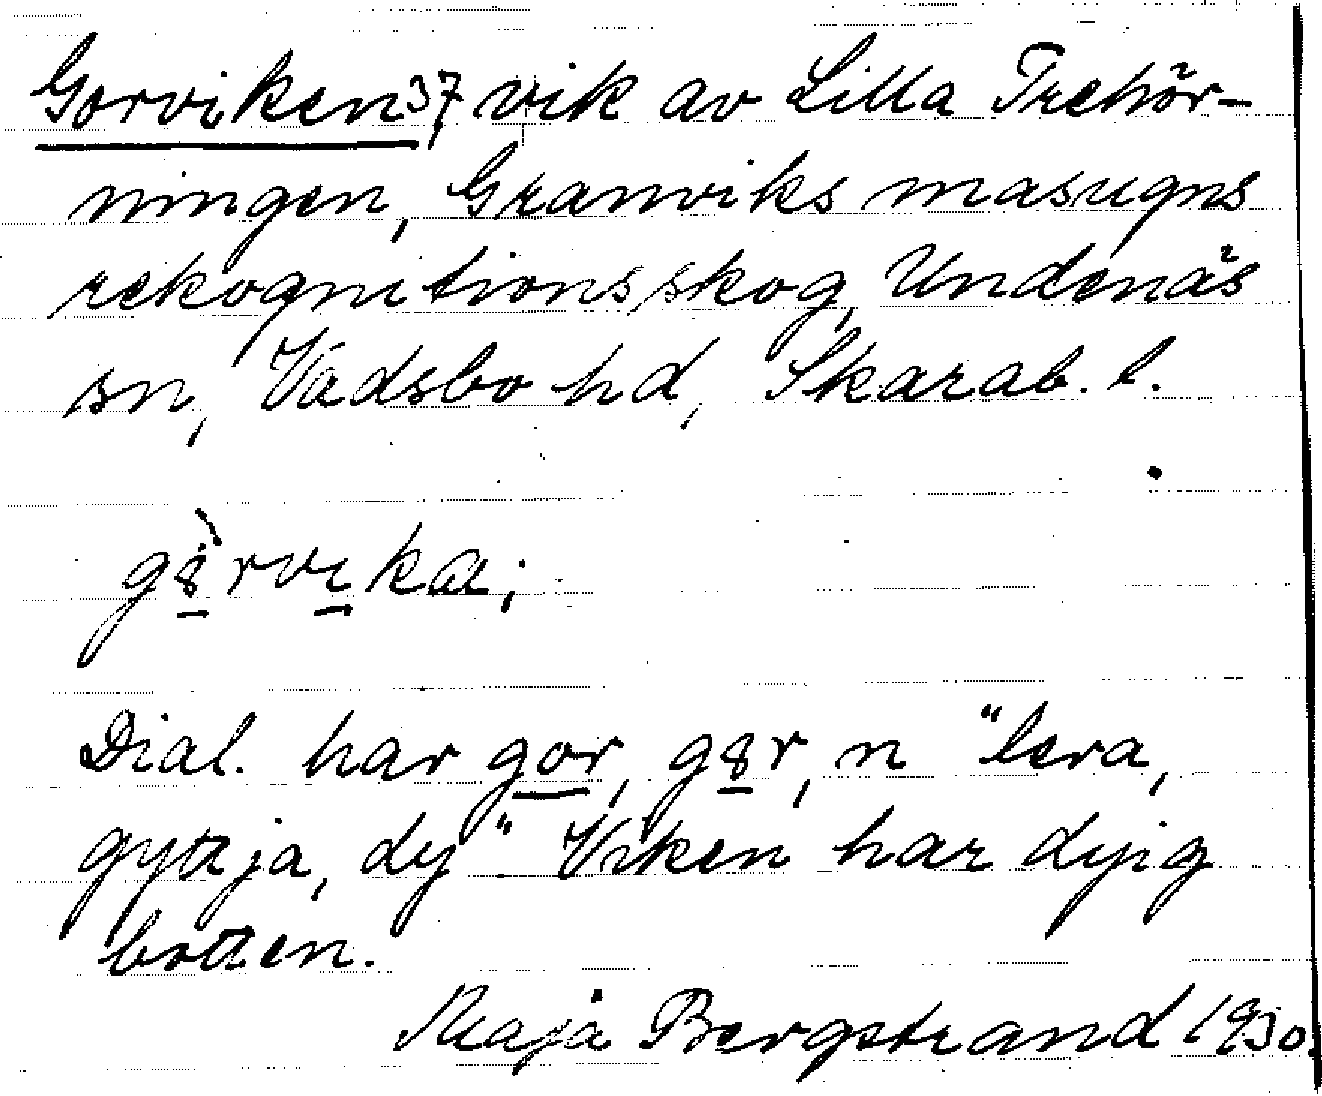 Gorviken 37, vik av Lilla Trehör-
ningen, Granviks masugns
rekognitionsskog, Undenäs
sn, Vadsbo hd, Skarab. l.
g8̀rvıka;
Dial. har gor, g8r, n "lera,
gyttja, dy" Viken har dyig
botten.
Maja Bergstrand 1930.